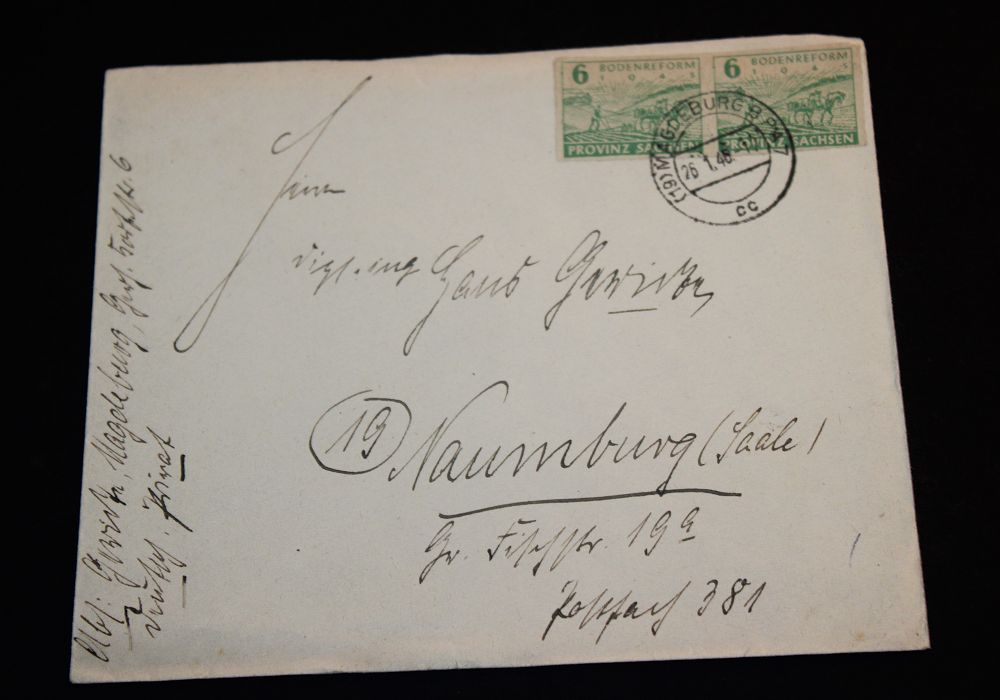 6 BODENREFORM
1945
PROVINZ SACHSEN
6 BODENREFORM
1945
PROVINZ SACHSEN
(19) MAGDEBURG 9
26.1.46
cc
Herrn
Dipl.-Ing Hans Gericke,
19 Naumburg (Saale)
Gr. Fischstr. 19a
Postfach 381
Abs: Gericke, Magdeburg, 6
deutsch. privat